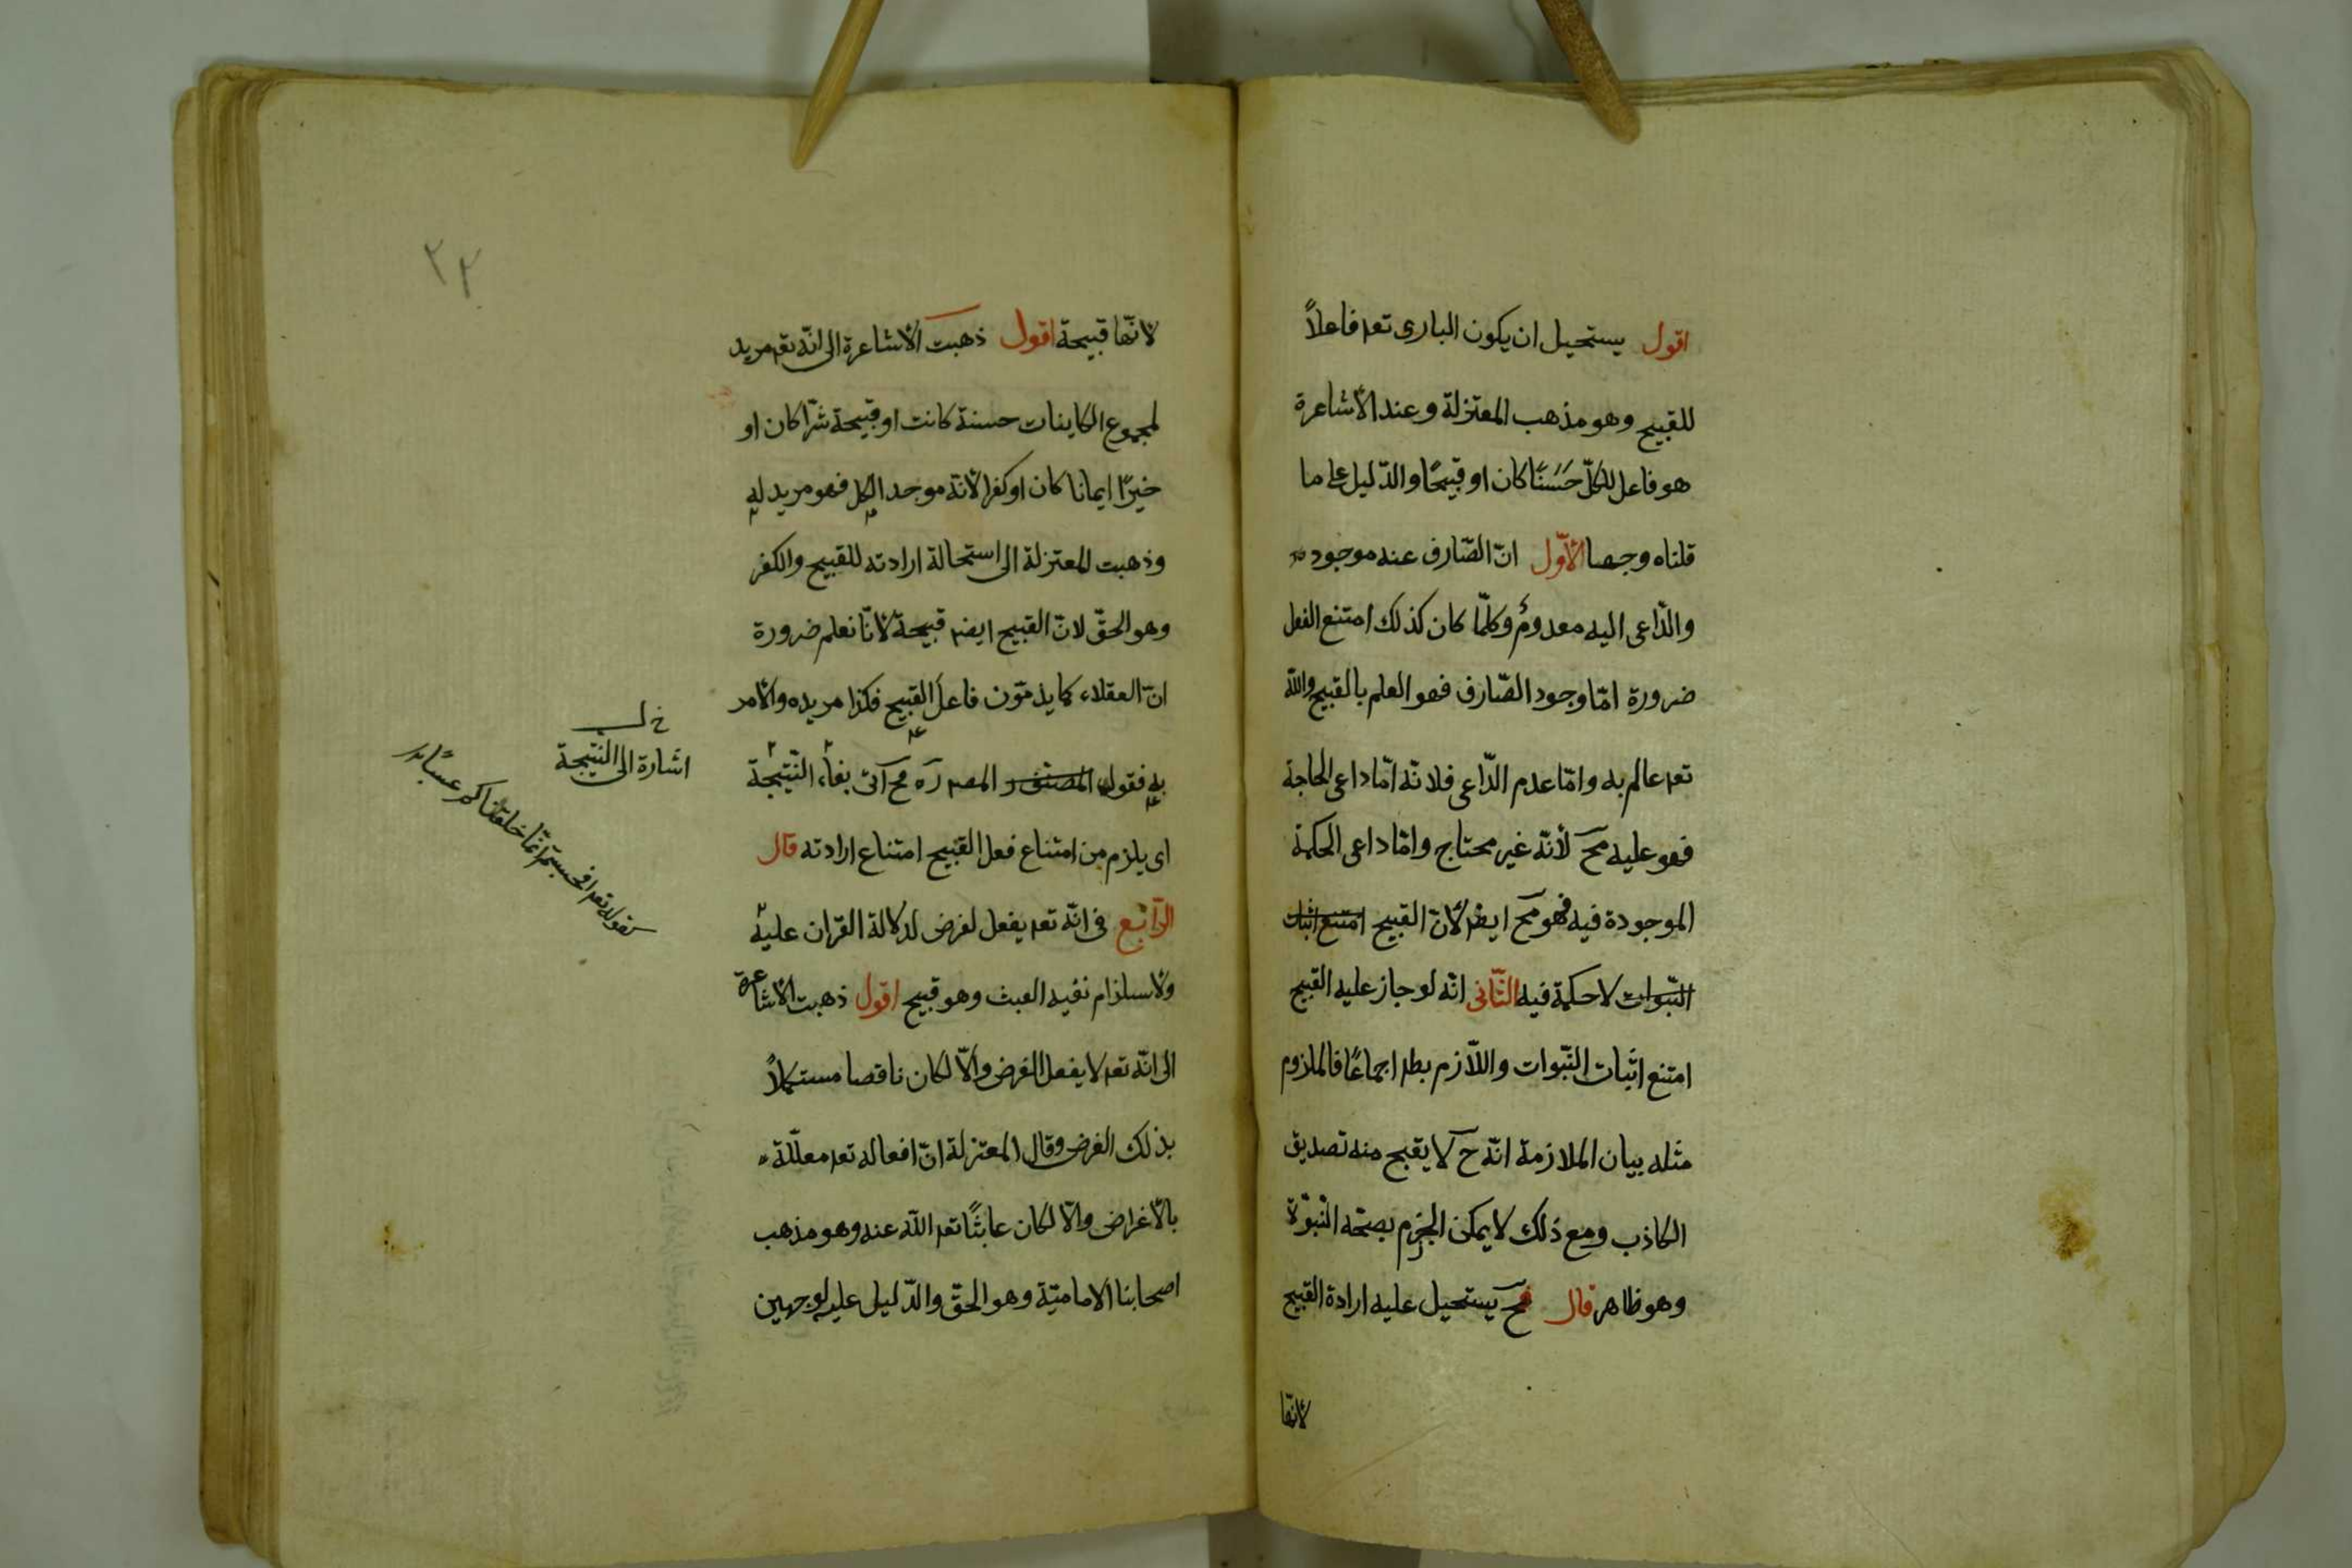 اقول يستحيل ان يكون البارى تعه فاعلاً
للقبيح وهو مذهب المعتزلة وعند الأشاعرة
هو فاعل للكلّ حَسَنًا كان او قبيحًا والدّليل على ما
قلناه وجها الأوّل انّ الصّارف عنه موجود
والدّاعى اليه معدومٌ وكلّما كان كذلك امتنع الفعل
ضرورة امّا وجود الصّارف فهو العلم بالقبيح والله
تعه عالم به وامّا عدم الدّاعى فلانّه امّا داعى الحاجة
فهو عليه مح لأنّه غير محتاج وامّا داعى الحكمة
الموجودة فيه فهو مح ايضه لأنّ القبيح امتنع اثبات
النّبوات لا حكمة فيه الثّانى انّه لو جاز عليه القبيح
امتنع اثبات النّبوات واللاّزم بطه اجماعًا فالملزوم
مثله بيان الملازمة انّه ح لا يقبح منه تصديق
الكاذب ومع ذلك لا يمكن الجزم بصحّة النّبوّة
وهو ظاهر قال فح يستحيل عليه ارادة القبيح
لانّها
٢٢
لانّها قبيحة اقول ذهبت الأشاعرة الى انّه تعه مريد
لمجموع الكاينات حسنة كانت او قبيحة شرّا كان او
خيرًا ايمانا كان او كفرا لأنّه موجد الكل فهو مريد له
وذهبت المعتزلة الى استحالة ارادته للقبيح والكفر
وهو الحقّ لانّ القبيح ايضه قبيحة لأنّا نعلم ضرورة
انّ العقلاء كما يذمّون فاعل القبيح فكذا مريده والأمر
به فقول المصنّف المصه ره مح آتى بفاء النّتيجة
اى يلزم من امتناع فعل القبيح امتناع ارادته قال
الرّابع فى انّه تعه يفعل لغرض لدلالة القران عليه
ولاستلزام نفيه العبث وهو قبيح اقول ذهبت الأشاعرة
الى انّه تعه لا يفعل الغرض والاّ لكان ناقصا مستكملاً
بذلك الغرض وقال المعتزلة انّ افعاله تعه معلّلة
بالأغراض والاّ لكان عابثًا تعه الله عنه وهو مذهب
اصحابنا الاماميّة وهو الحقّ والدّليل عليه لوجهين
خ ل
اشارة الى النّتيجة
كقوله تعه افحسبتم انّما خلقناكم عبثًا